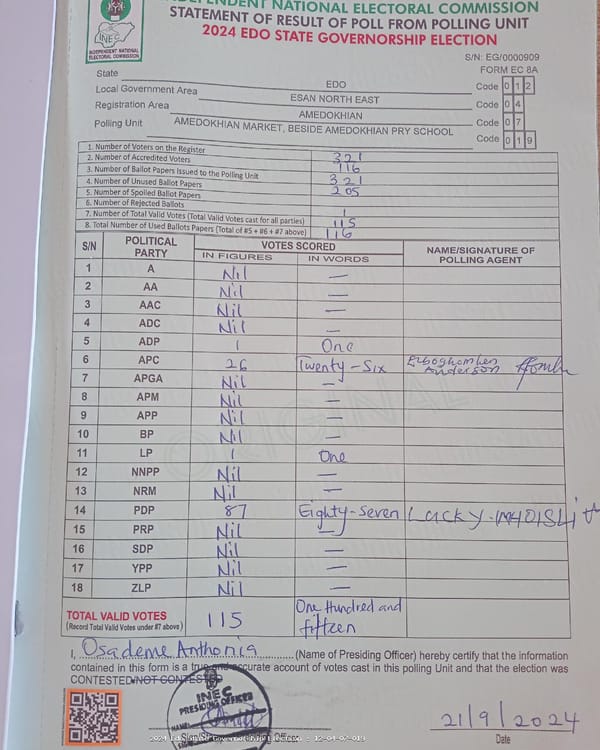 INDEPENDENT NATIONAL ELECTORAL COMMISSION
STATEMENT OF RESULT OF POLL FROM POLLING UNIT
2024 EDO STATE GOVERNORSHIP ELECTION
INEC
INDEPENDENT NATIONAL
ELECTORAL COMMISSION
S/N: EG/0000909
FORM EC 8A
State EDO Code 0 1 2
Local Government Area ESAN NORTH EAST Code 0 4
Registration Area AMEDOKHIAN Code 0 7
Polling Unit AMEDOKHIAN MARKET, BESIDE AMEDOKHIAN PRY SCHOOL Code 0 1 9
1. Number of Voters on the Register 321
2. Number of Accredited Voters 116
3. Number of Ballot Papers Issued to the Polling Unit 321
4. Number of Unused Ballot Papers 205
5. Number of Spoiled Ballot Papers
6. Number of Rejected Ballots 1
7. Number of Total Valid Votes (Total Valid Votes cast for all parties) 115
8. Total Number of Used Ballots Papers (Total of #5 + #6 + #7 above) 116
S/N POLITICAL PARTY VOTES SCORED NAME/SIGNATURE OF POLLING AGENT
IN FIGURES IN WORDS
1 A Nil —
2 AA Nil —
3 AAC Nil —
4 ADC Nil —
5 ADP 1 One
6 APC 26 Twenty-Six Anderson
7 APGA Nil —
8 APM Nil —
9 APP Nil —
10 BP Nil —
11 LP 1 One
12 NNPP Nil —
13 NRM Nil —
14 PDP 87 Eighty-Seven Lucky
15 PRP Nil —
16 SDP Nil —
17 YPP Nil —
18 ZLP Nil —
ORIGINAL
TOTAL VALID VOTES 115 One Hundred and
(Record Total Valid Votes under #7 above) fiftzen
I, Osademe Anthonia (Name of Presiding Officer) hereby certify that the information
contained in this form is a true and accurate account of votes cast in this polling Unit and that the election was
CONTESTED/NOT CONTESTED
INEC
PRESIDING OFFICER
NAME:
2024 Edo State Governorship Election - 12-04-07-019
21/9/2024
Date